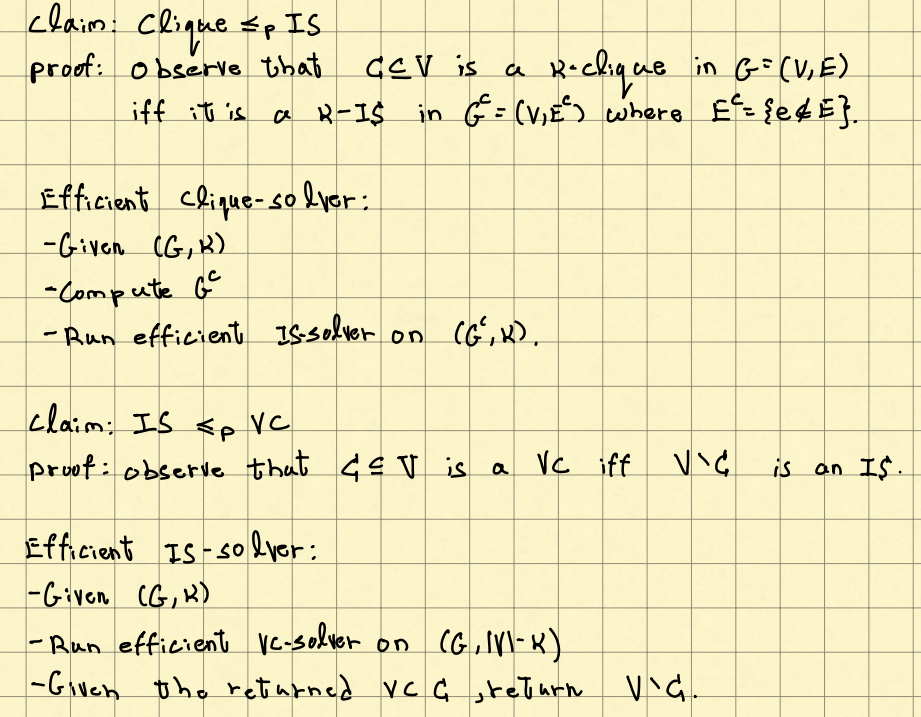 Claim: Clique ≤p IS
proof: observe that C⊆V is a k-clique in G=(V,E)
iff it is a k-IS in Gᶜ=(V,Eᶜ) where Eᶜ={e∉E}.
Efficient clique-solver:
-Given (G,k)
-Compute Gᶜ
-Run efficient IS-solver on (Gᶜ,k).
Claim: IS ≤p VC
proof: observe that C⊆V is a VC iff V\C is an IS.
Efficient IS-solver:
-Given (G,k)
-Run efficient VC-solver on (G,|V|-k)
-Given the returned VC C, return V\C.